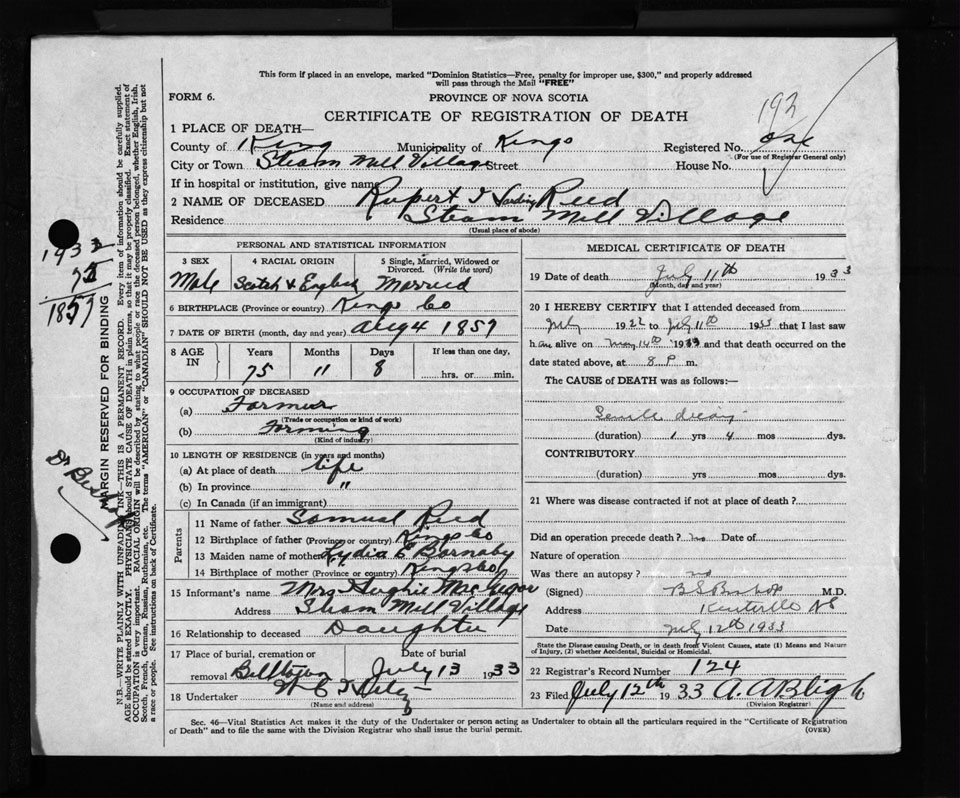 This form if placed in an envelope, marked "Dominion Statistics—Free, penalty for improper use, $300," and properly addressed
will pass through the Mail "FREE"
FORM 6.
PROVINCE OF NOVA SCOTIA
192
CERTIFICATE OF REGISTRATION OF DEATH
1 PLACE OF DEATH—
County of Kings Municipality of Kings Registered No.
(For use of Registrar General only)
City or Town Steam Mill Village Street House No.
If in hospital or institution, give name
2 NAME OF DECEASED Rupert Harding Reed
Residence Steam Mill Village
(Usual place of abode)
PERSONAL AND STATISTICAL INFORMATION
3 SEX 4 RACIAL ORIGIN 5 Single, Married, Widowed or Divorced. (Write the word)
Male Scotch & English Married
6 BIRTHPLACE (Province or country) Kings Co
7 DATE OF BIRTH (month, day and year) Aug 4 1857
8 AGE IN Years Months Days If less than one day,
75 11 8 hrs. or min.
9 OCCUPATION OF DECEASED
(a) Farmer
(Trade or occupation or kind of work)
(b) Farming
(Kind of industry)
10 LENGTH OF RESIDENCE (in years and months)
(a) At place of death life
(b) In province "
(c) In Canada (if an immigrant)
Parents
11 Name of father Samual Reed
12 Birthplace of father (Province or country) Kings Co
13 Maiden name of mother Lydia E Barnaby
14 Birthplace of mother (Province or country) Kings Co
15 Informant's name Mrs
Address Steam Mill Village
16 Relationship to deceased Daughter
17 Place of burial, cremation or removal Date of burial
July 13 1933
18 Undertaker
(Name and address)
MEDICAL CERTIFICATE OF DEATH
19 Date of death July 11th 1933
(Month, day and year)
20 I HEREBY CERTIFY that I attended deceased from
July 1922 to July 11th 1933 that I last saw
h alive on May 14th 1933 and that death occurred on the
date stated above, at 8 P m.
The CAUSE of DEATH was as follows:—
Senile decay
(duration) 1 yrs 4 mos dys.
CONTRIBUTORY
(duration) yrs mos dys.
21 Where was disease contracted if not at place of death?
Did an operation precede death? no Date of
Nature of operation
Was there an autopsy? no
(Signed) B S Bishop M.D.
Address Kentville NS
Date July 12th 1933
State the Disease causing Death, or in death from Violent Causes, state (1) Means and Nature
of Injury, (2) whether Accidental, Suicidal or Homicidal.
22 Registrar's Record Number 124
23 Filed July 12th 1933 A. A Bligh
(Division Registrar)
Sec. 46—Vital Statistics Act makes it the duty of the Undertaker or person acting as Undertaker to obtain all the particulars required in the "Certificate of Registration
of Death" and to file the same with the Division Registrar who shall issue the burial permit. (OVER)
MARGIN RESERVED FOR BINDING
N.B.—WRITE PLAINLY WITH UNFADING INK—THIS IS A PERMANENT RECORD. Every item of information should be carefully supplied.
AGE should be stated EXACTLY. PHYSICIANS should STATE CAUSE OF DEATH in plain terms, so that it may be properly classified. Exact statement of
OCCUPATION is very important. RACIAL ORIGIN will be described by stating to what people or race the deceased person belonged, whether English, Irish,
Scotch, French, German, Russian, Ruthenian, etc. The terms "AMERICAN" or "CANADIAN" SHOULD NOT BE USED as they express citizenship but not
a race or people. See instructions on back of Certificate.
1933
75
1857
Dr Bishop